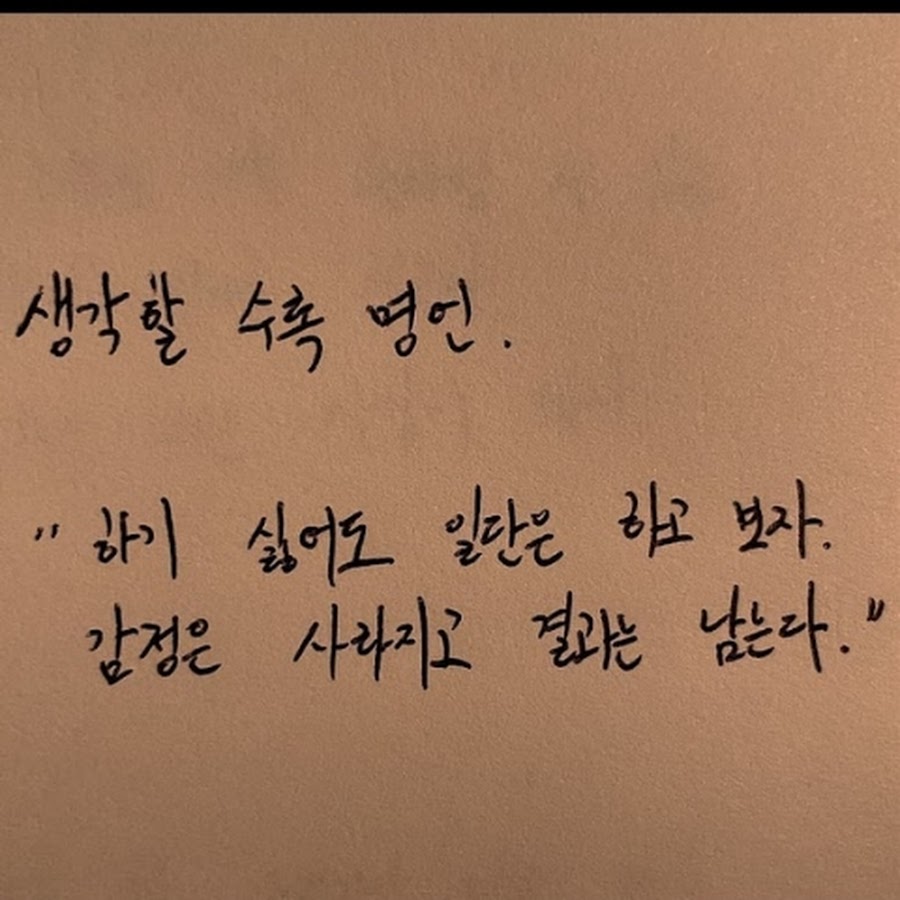 생각할 수록 명언.
"하기 싫어도 일단은 하고 보자.
감정은 사라지고 결과는 남는다."